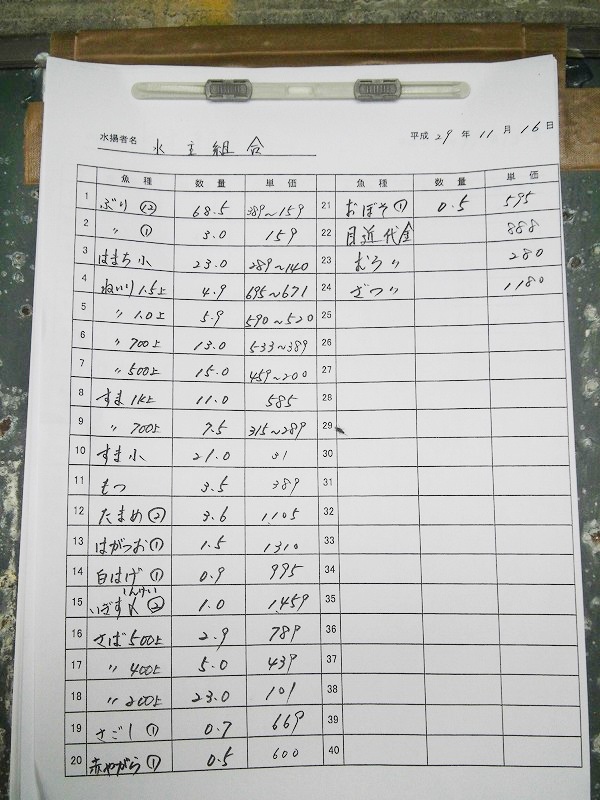 水揚者名 水主組合
平成 29 年 11 月 16 日
魚種 数量 単価
1 ぶり ⑫ 68.5 389~159
2 〃 ① 3.0 159
3 はまち小 23.0 289~140
4 ねいり 1.5上 4.9 695~671
5 〃 1.0上 5.9 590~520
6 〃 700上 13.0 533~389
7 〃 500上 15.0 459~200
8 すま 1k上 11.0 585
9 〃 700上 7.5 315~289
10 すま小 21.0 31
11 もつ 3.5 389
12 たまめ ② 3.6 1105
13 はがつお ① 1.5 1310
14 白はげ ① 0.9 995
15 いぎす ② 1.0 1459
16 さば 500上 2.9 789
17 〃 400上 5.0 439
18 〃 200上 23.0 101
19 さごし ① 0.7 669
20 赤やがら ① 0.5 600
魚種 数量 単価
21 おぼそ ① 0.5 595
22 目近代金 888
23 むろ 〃 280
24 ざつ 〃 1180
25
26
27
28
29
30
31
32
33
34
35
36
37
38
39
40